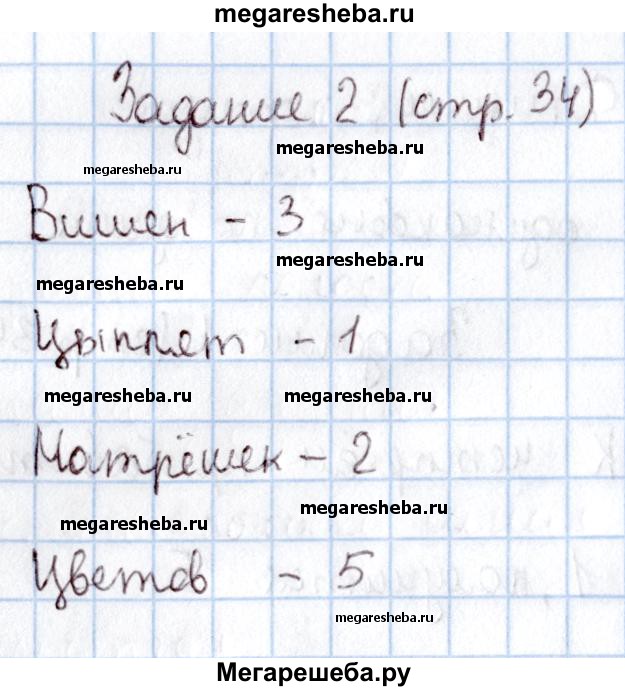 megaresheba.ru
Задание 2 (стр. 34)
megaresheba.ru
megaresheba.ru
Вишен - 3
megaresheba.ru
megaresheba.ru
Цыплят - 1
megaresheba.ru megaresheba.ru
Матрёшек - 2
megaresheba.ru
megaresheba.ru
Цветов - 5
megaresheba.ru
Мегарешеба.ру